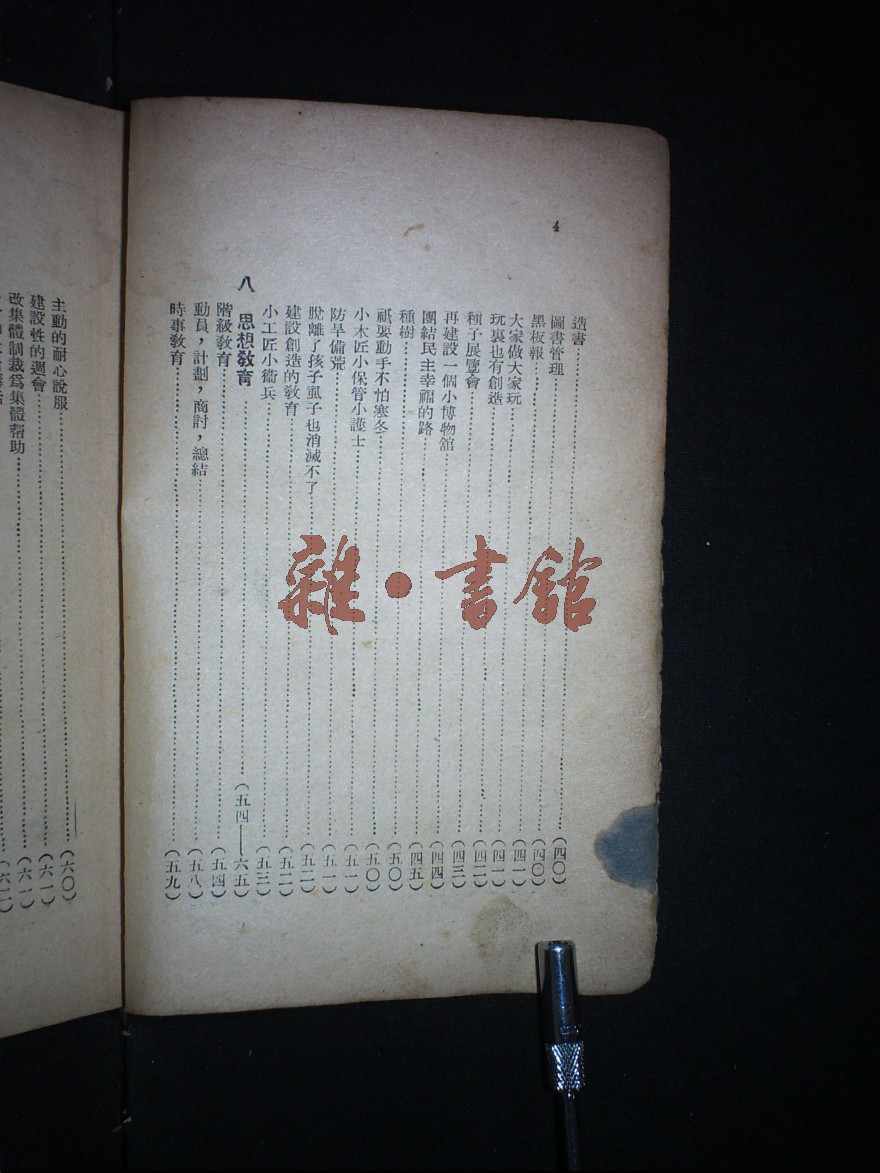 4
造書(四〇)
圖書管理(四〇)
黑板報(四一)
大家做大家玩(四一)
玩裏也有創造(四二)
種子展覽會(四三)
再建設一個小博物舘(四四)
團結民主幸福的路(四五)
種樹(五〇)
祇要動手不怕寒冬(五〇)
小木匠小保管小護士(五一)
防旱備荒(五一)
脫離了孩子虱子也消滅不了(五二)
建設創造的敎育(五二)
小工匠小衞兵(五三)
八 思想敎育(五四——六五)
階級敎育(五四)
動員,計劃,商討,總結(五八)
時事敎育(五九)
主動的耐心說服(六〇)
建設性的週會(六一)
改集體制裁爲集體幫助(六一)
(六二)
雜·書舘